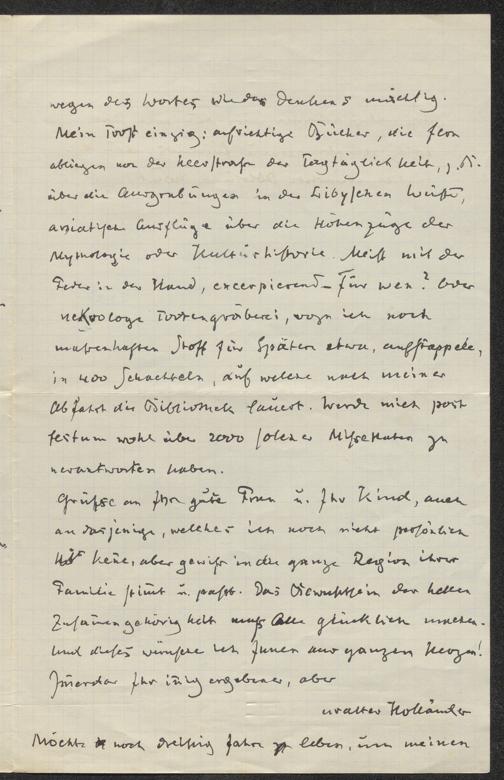 wegen des Wortes wie des Denkens mächtig.
Mein Trost einzig: aufrichtige Bücher, die fern
abliegen von der Heerstrasse der Tagtäglichkeit, z. B.
über die Ausgrabungen in der Libyschen Wüste,
asiatische Ausflüge über die Höhenzüge der
Mythologie oder Kulturhistorie. Meist mit der
Feder in der Hand, excerpierend – für wen? Oder
nekrologe Totengräberei, wozu ich noch
massenhaften Stoff für Später etwa, aufstapple,
in 400 Schachteln, auf welche nach meiner
Abfahrt die Bibliothek lauert. Werde mich post
festum wohl über 2000 solcher Missetaten zu
verantworten haben.
Grüsse an Ihre gute Frau u. Ihr Kind, auch
an dasjenige, welches ich noch nicht persönlich
kene, aber gewiss in die ganze Region ihrer
Familie stimt u. passt. Das Bewusstsein der hellen
Zusamengehörigkeit muss Alle glücklich machen.
Und dieses wünsche ich Ihnen aus ganzem Herzen!
Imerdar Ihr inig ergebener, aber
uralter Holländer
Möchte noch dreissig Jahre leben, um meinen